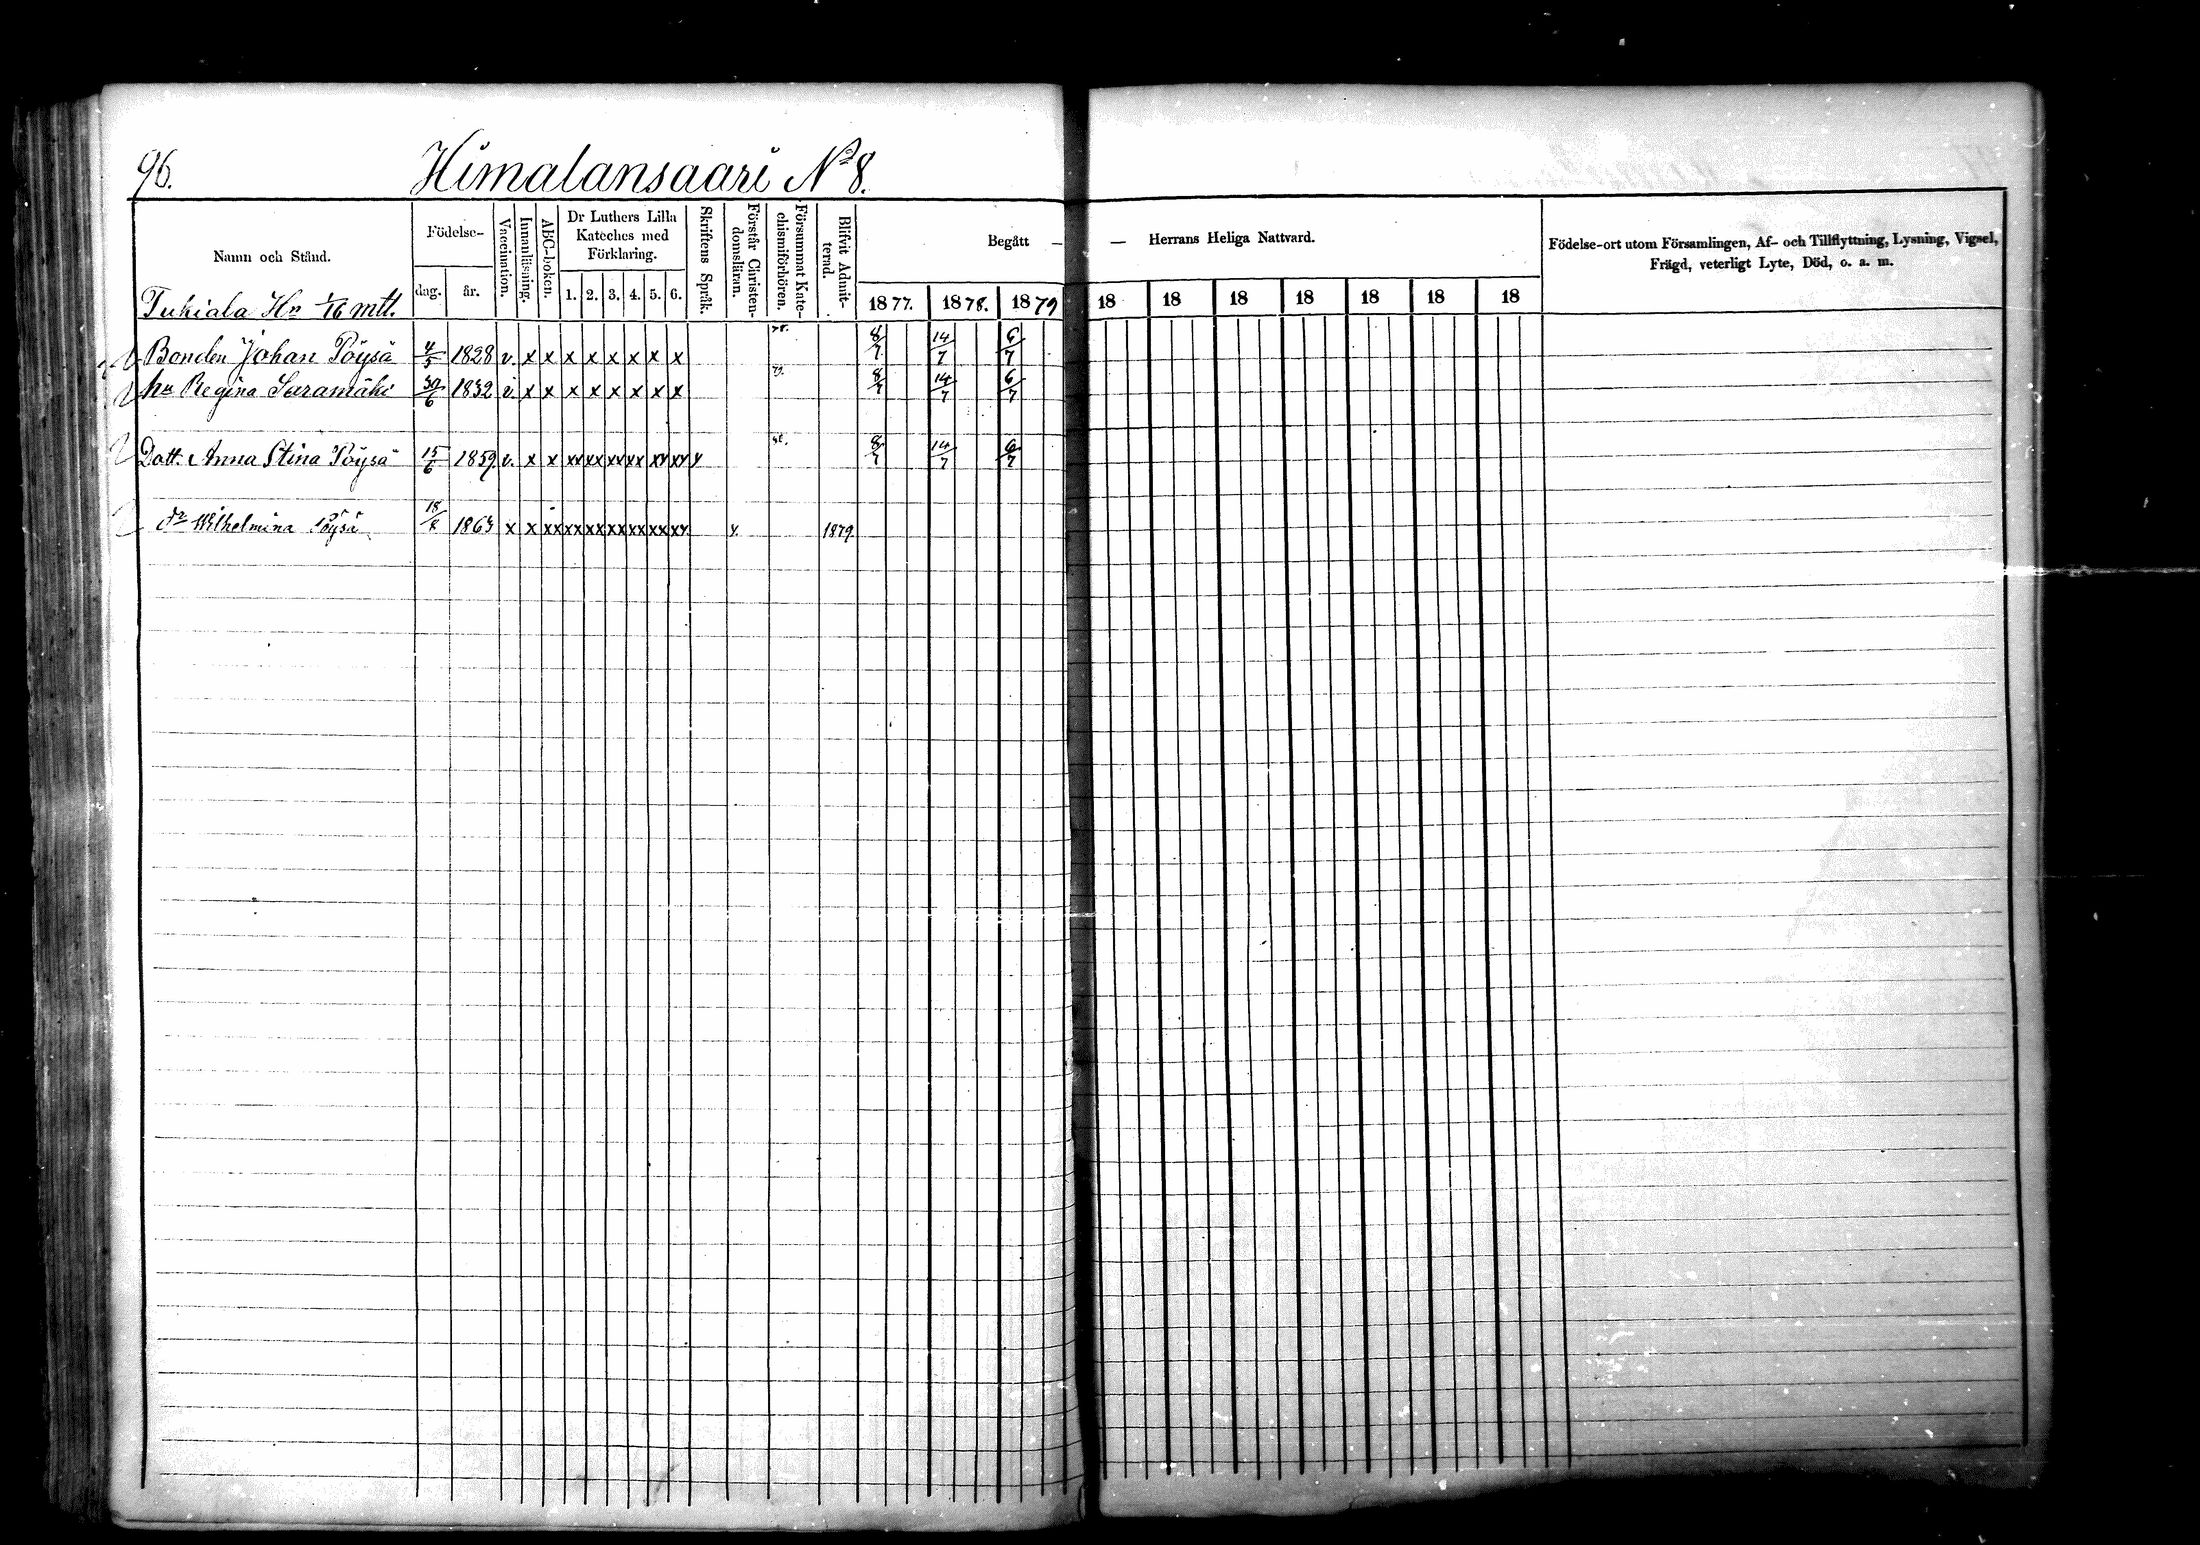 96.
Himalansaari No 8.
Namn och Stånd.
Födelse-
dag. år.
Vaccination.
Innanläsning.
ABC-boken.
Dr Luthers Lilla Kateches med Förklaring.
1. 2. 3. 4. 5. 6.
Skriftens Språk.
Förstår Christen-domsläran.
Försummat Kate-chismiförhören.
Blifvit Admit-terad.
Begått — — Herrans Heliga Nattvard.
1877. 1878. 1879 18 18 18 18 18 18 18
Födelse-ort utom Församlingen, Af- och Tillflyttning, Lysning, Vigsel,
Frägd, veterligt Lyte, Död, o. a. m.
Tukiala Hn 1/16 mtl.
Bonden Johan Pöysä 4/5 1828 v. x x x x x x x x 8/7 14/7 6/7
hu Regina Saramäki 30/6 1832 v. x x x x x x x x 8/7 14/7 6/7
Dott. Anna Stina Pöysä 15/6 1859 v. x x xx xx xx xx xx xx x 8/7 14/7 6/7
do Wilhelmina Pöysä 18/8 1863 x x xx xx xx xx xx xx xx x. 1879.